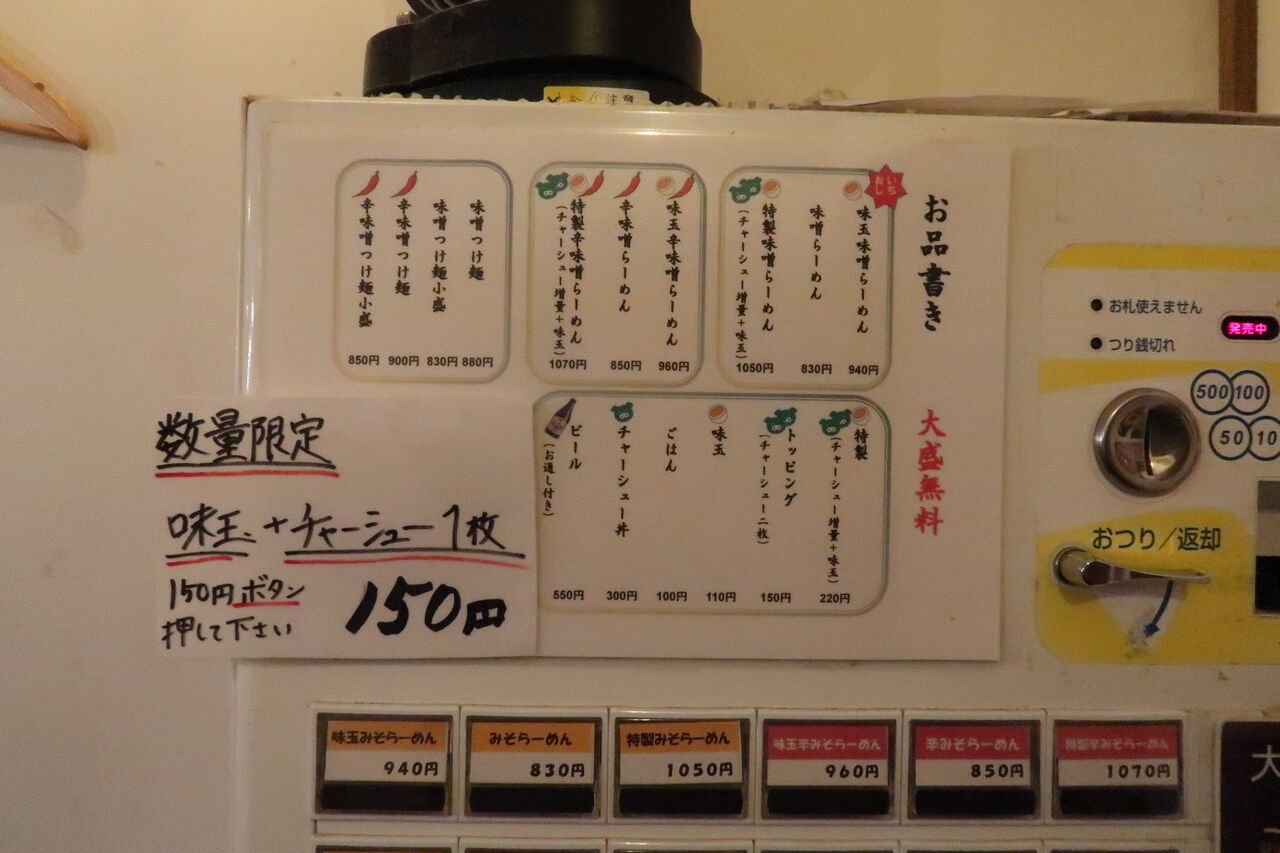 注意
お品書き
大盛無料
いち
おし
味玉味噌らーめん 940円
味噌らーめん 830円
特製味噌らーめん
(チャーシュー増量+味玉) 1050円
味玉辛味噌らーめん 960円
辛味噌らーめん 850円
特製辛味噌らーめん
(チャーシュー増量+味玉) 1070円
味噌つけ麺 880円
味噌つけ麺小盛 830円
辛味噌つけ麺 900円
辛味噌つけ麺小盛 850円
特製
(チャーシュー増量+味玉) 220円
トッピング
(チャーシュー二枚) 150円
味玉 110円
ごはん 100円
チャーシュー丼 300円
ビール
(お通し付き) 550円
数量限定
味玉+チャーシュー1枚
150円ボタン
押して下さい
150円
お札使えません
つり銭切れ
発売中
500 100
50 10
おつり/返却
味玉みそらーめん
940円
みそらーめん
830円
特製みそらーめん
1050円
味玉辛みそらーめん
960円
辛みそらーめん
850円
特製辛みそらーめん
1070円
大